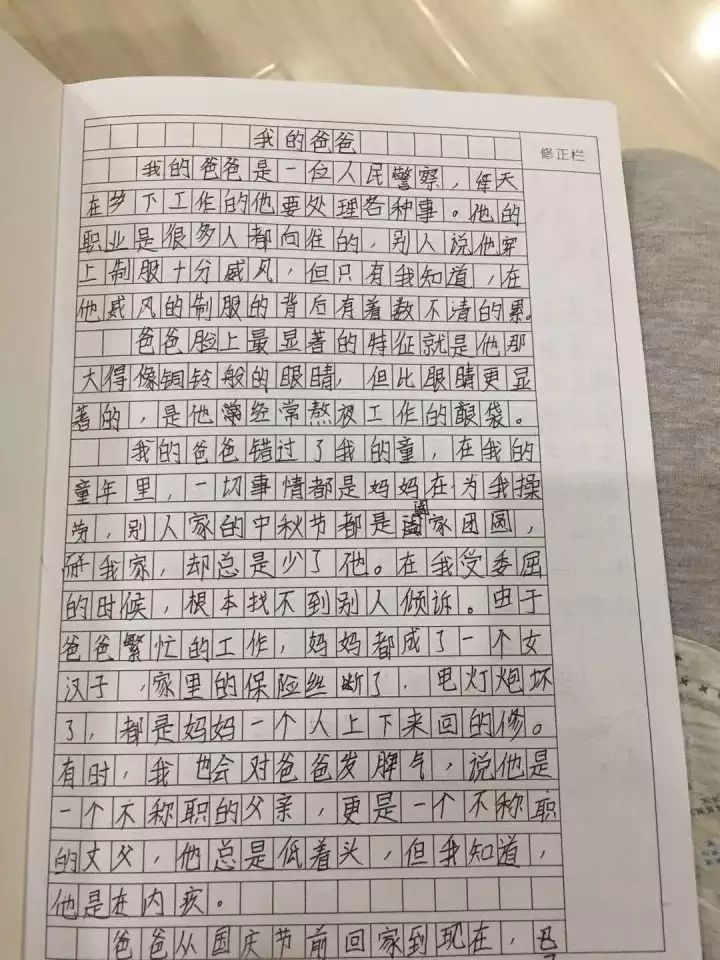 我的爸爸
修正栏
我的爸爸是一位人民警察，每天
在岁下工作的他要处理各种事。他的
职业是很多人都向往的，别人说他穿
上制服十分威风，但只有我知道，在
他威风的制服的背后有着数不清的累。
爸爸脸上最显著的特征就是他那
大得像铜铃般的眼睛，但比眼睛更显
著的，是他常经常熬夜工作的眼袋。
我的爸爸错过了我的童，在我的
童年里，一切事情都是妈妈在为我操
劳，别人家的中秋节都是阖家团圆，
而我家，却总是少了他。在我受委屈
的时候，根本找不到别人倾诉。由于
爸爸繁忙的工作，妈妈都成了一个女
汉子，家里的保险丝断了，电灯炮坏
了，都是妈妈一个人上下来回的修。
有时，我也会对爸爸发脾气，说他是
一个不称职的父亲，更是一个不称职
的丈父，他总是低着头，但我知道，
他是在内疚。
爸爸从国庆节前回家到现在，